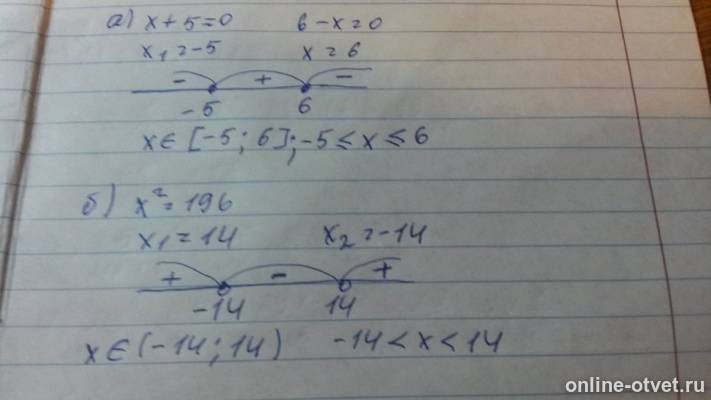 а) x+5=0 6-x=0
x₁=-5 x=6
- + -
-5 6
x∈[-5; 6]; -5≤x≤6
б) x²=196
x₁=14 x₂=-14
+ - +
-14 14
x∈(-14; 14) -14<x<14
online-otvet.ru